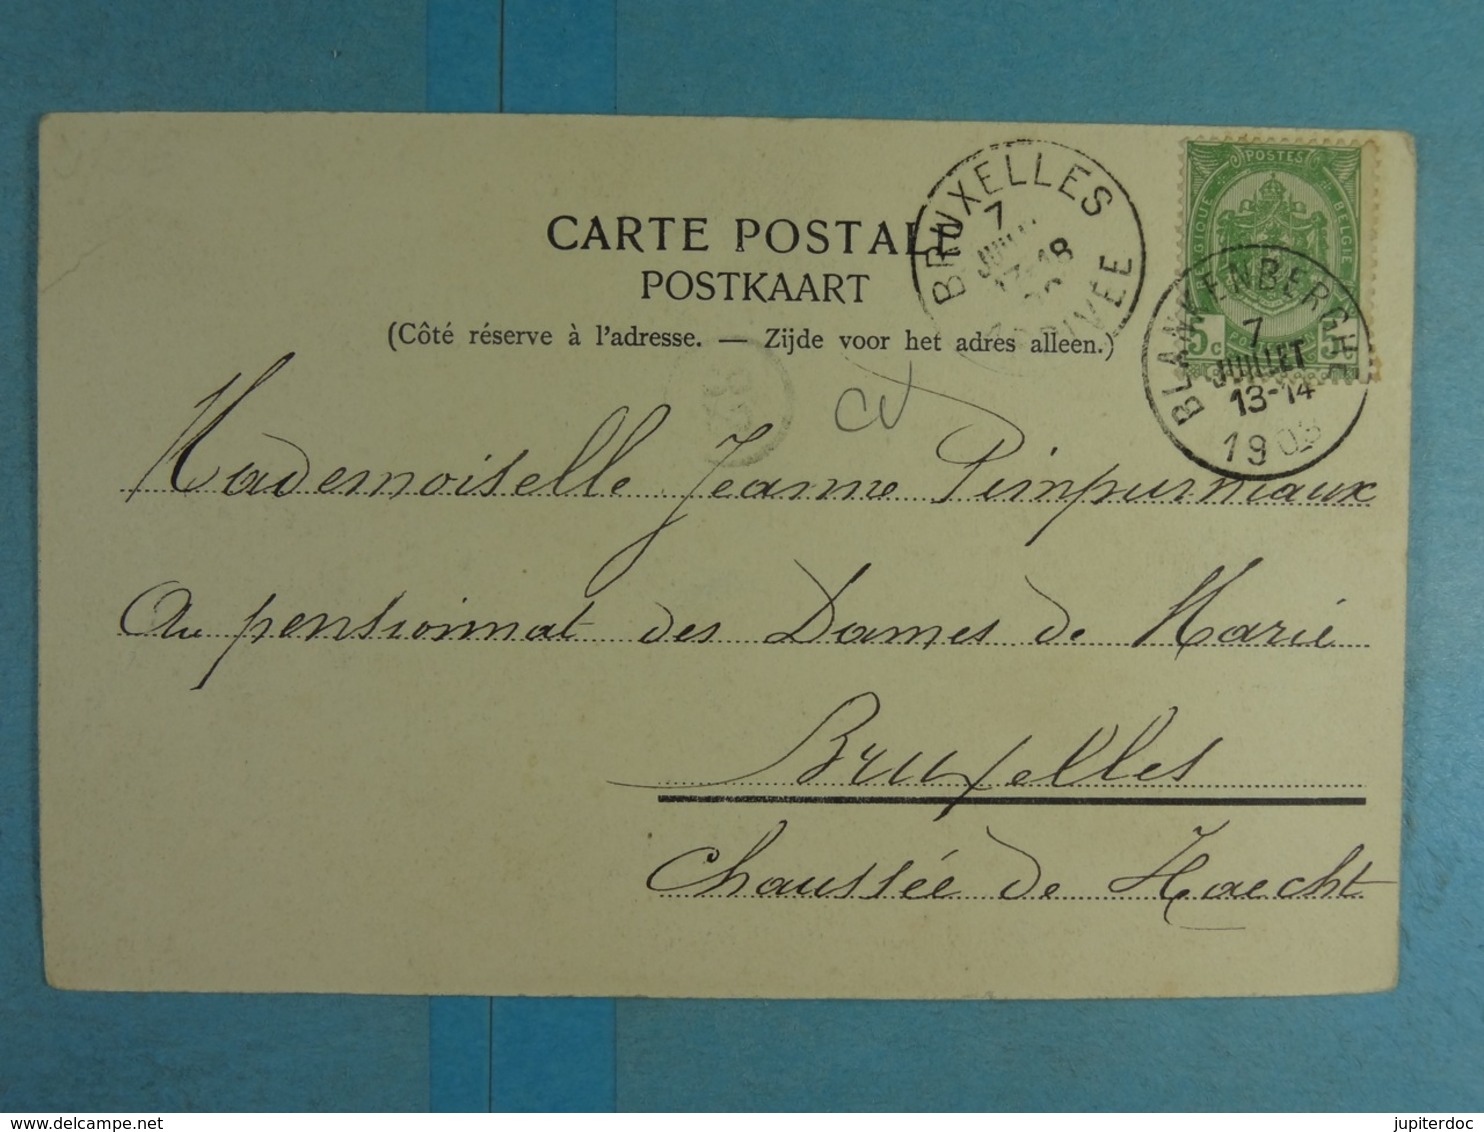 CARTE POSTALE
POSTKAART
(Côté réserve à l'adresse. — Zijde voor het adres alleen.)
BRUXELLES
7
JUILLET
17-18
ARRIVÉE
POSTES
BELGIQUE BELGIE
5c 5c
POSTERIJEN
BLANKENBERGHE
7
JUILLET
13-14
1903
Mademoiselle Jeanne Pimpurniaux
Au pensionnat des Dames de Marie
Bruxelles
Chaussée de Haecht
delcampe.net
jupiterdoc